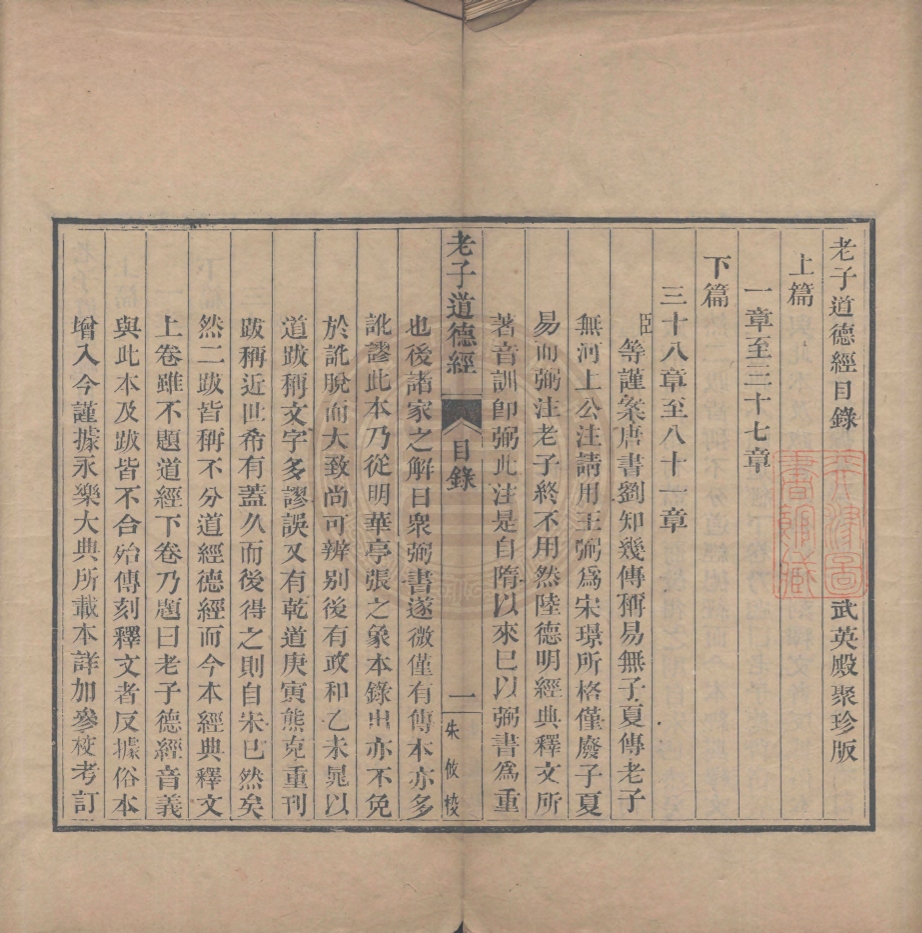 老子道德經目錄 武英殿聚珍版
上篇
一章至三十七章
下篇
三十八章至八十一章
臣等謹案唐書劉知幾傳稱易無子夏傳老子
無河上公注請用王弼爲宋璟所格僅廢子夏
易而弼注老子終不用然陸德明經典釋文所
著音訓卽弼此注是自隋以來已以弼書爲重
老子道德經 目錄 一 朱攸校
也後諸家之解日衆弼書遂微僅有傳本亦多
訛謬此本乃從明華亭張之象本錄出亦不免
於訛脫而大致尚可辨别後有政和乙未晁以
道跋稱文字多謬誤又有乾道庚寅熊克重刊
跋稱近世希有蓋久而後得之則自宋已然矣
然二跋皆稱不分道經德經而今本經典釋文
上卷雖不題道經下卷乃題曰老子德經音義
與此本及跋皆不合殆傳刻釋文者反據俗本
增入今謹據永樂大典所載本詳加參校考訂